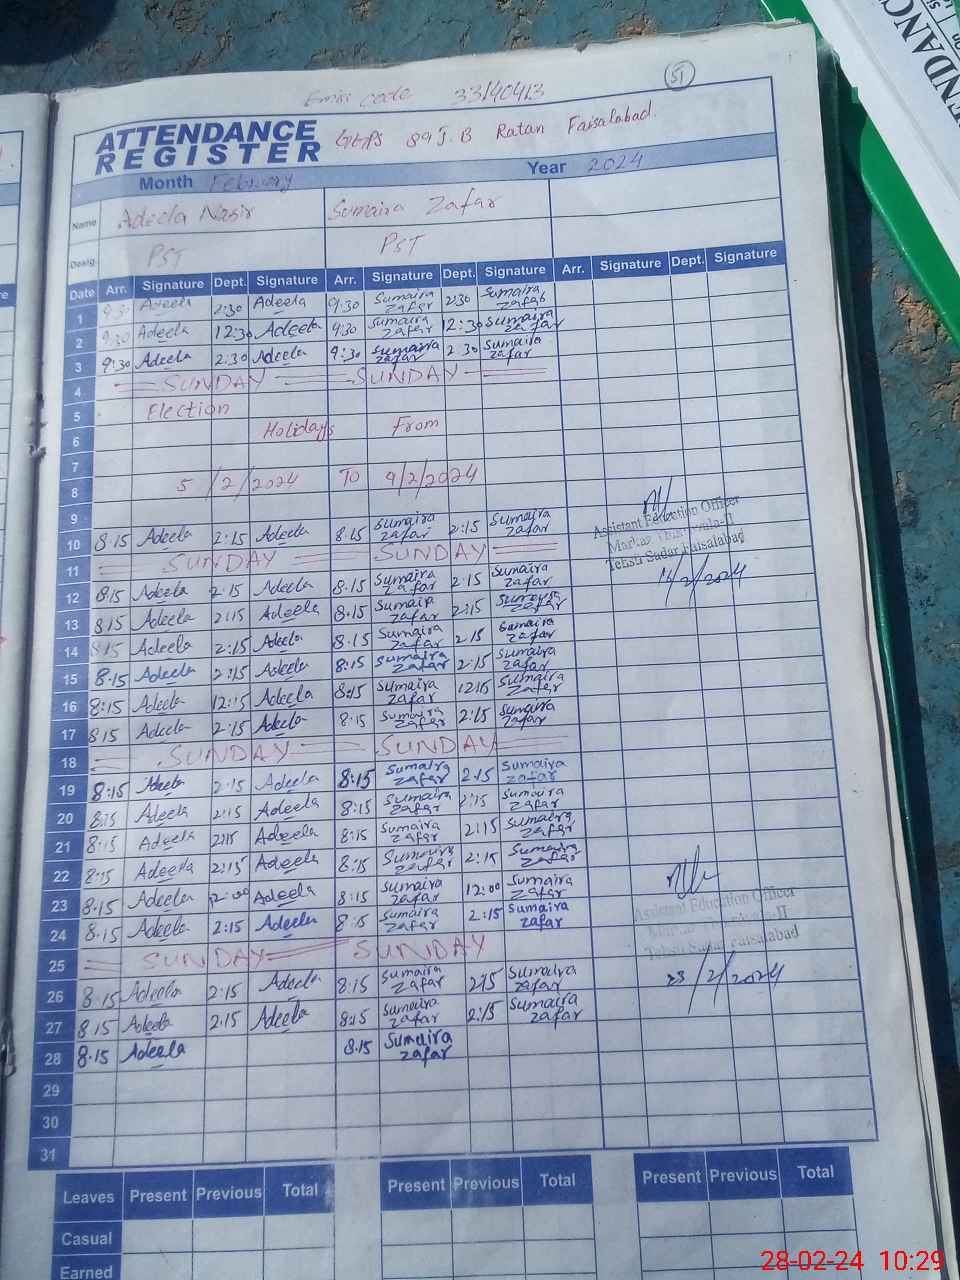 51
Emis code 33140413
ATTENDANCE
REGISTER
GEPS 89 J.B Ratan Faisalabad.
Month February Year 2024
Name Adeela Nasir Sumaira Zafar
Desig. PST PST
Date Arr. Signature Dept. Signature Arr. Signature Dept. Signature Arr. Signature Dept. Signature
1 9:30 Adeela 2:30 Adeela 9:30 Sumaira zafar 2:30 Sumaira zafar
2 9:30 Adeela 12:30 Adeela 9:30 Sumaira zafar 12:30 Sumaira zafar
3 9:30 Adeela 2:30 Adeela 9:30 Sumaira zafar 2:30 Sumaira zafar
4 SUNDAY SUNDAY
5 Election
6 Holidays From
7
8 5/2/2024 To 9/2/2024
9
10 8:15 Adeela 2:15 Adeela 8:15 Sumaira zafar 2:15 Sumaira zafar
Assistant Education Officer
Tehsil Sadar Faisalabad
11 SUNDAY SUNDAY
12 8:15 Adeela 2:15 Adeela 8:15 Sumaira zafar 2:15 Sumaira zafar
13 8:15 Adeela 2:15 Adeela 8:15 Sumaira zafar 2:15 Sumaira zafar
14 8:15 Adeela 2:15 Adeela 8:15 Sumaira zafar 2:15 Sumaira zafar
15 8:15 Adeela 2:15 Adeela 8:15 Sumaira zafar 2:15 Sumaira zafar
16 8:15 Adeela 12:15 Adeela 8:15 Sumaira zafar 12:15 Sumaira zafar
17 8:15 Adeela 2:15 Adeela 8:15 Sumaira zafar 2:15 Sumaira zafar
18 SUNDAY SUNDAY
19 8:15 Adeela 2:15 Adeela 8:15 Sumaira zafar 2:15 Sumaira zafar
20 8:15 Adeela 2:15 Adeela 8:15 Sumaira zafar 2:15 Sumaira zafar
21 8:15 Adeela 2:15 Adeela 8:15 Sumaira zafar 2:15 Sumaira zafar
22 8:15 Adeela 2:15 Adeela 8:15 Sumaira zafar 2:15 Sumaira zafar
23 8:15 Adeela 12:00 Adeela 8:15 Sumaira zafar 12:00 Sumaira zafar
24 8:15 Adeela 2:15 Adeela 8:15 Sumaira zafar 2:15 Sumaira zafar
Assistant Education Officer
Tehsil Sadar Faisalabad
23/2/2024
25 SUNDAY SUNDAY
26 8:15 Adeela 2:15 Adeela 8:15 Sumaira zafar 2:15 Sumaira zafar
27 8:15 Adeela 2:15 Adeela 8:15 Sumaira zafar 2:15 Sumaira zafar
28 8:15 Adeela 8:15 Sumaira zafar
29
30
31
Leaves Present Previous Total Present Previous Total Present Previous Total
Casual
Earned
28-02-24 10:29